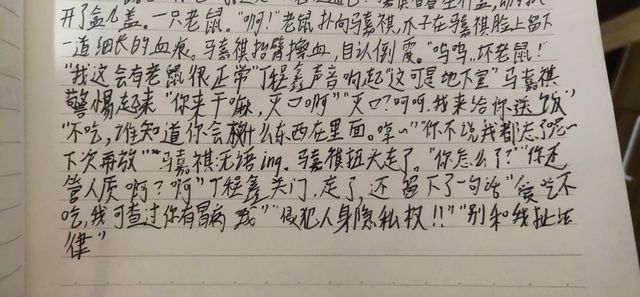 开了盒盖。一只老鼠。"啊!"老鼠扑向马嘉祺,爪子在马嘉祺脸上留下
一道细长的血痕。马嘉祺抬臂擦血,自认倒霉。"呜呜,坏老鼠!"
"我这会有老鼠很正常"丁程鑫声音响起"这可是地下室"马嘉祺
警惕起来"你来干嘛,灭口啊""灭口?呵呵.我来给你送饭"
"不吃,谁知道你会掺什么东西在里面。哼~""你不说我都忘了呢~
下次再放""马嘉祺无语ing.马嘉祺扭头走了。"你怎么了?""你还
管人质啊?啊"丁程鑫关门.走了,还留下了一句话"爱吃不
吃,我可查过你有胃病哦""侵犯人身隐私权!!""别和我扯法
律"